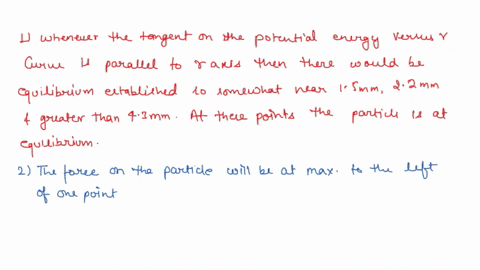 1) whenever the tangent on the potential energy versus r
Curve is parallel to r axis then there would be
equilibrium established so somewhat near 1.5mm, 2.2mm
& greater than 4.3mm. At there points the particle is at
equilibrium.
2) The force on the particle will be at max. to the left
of one point